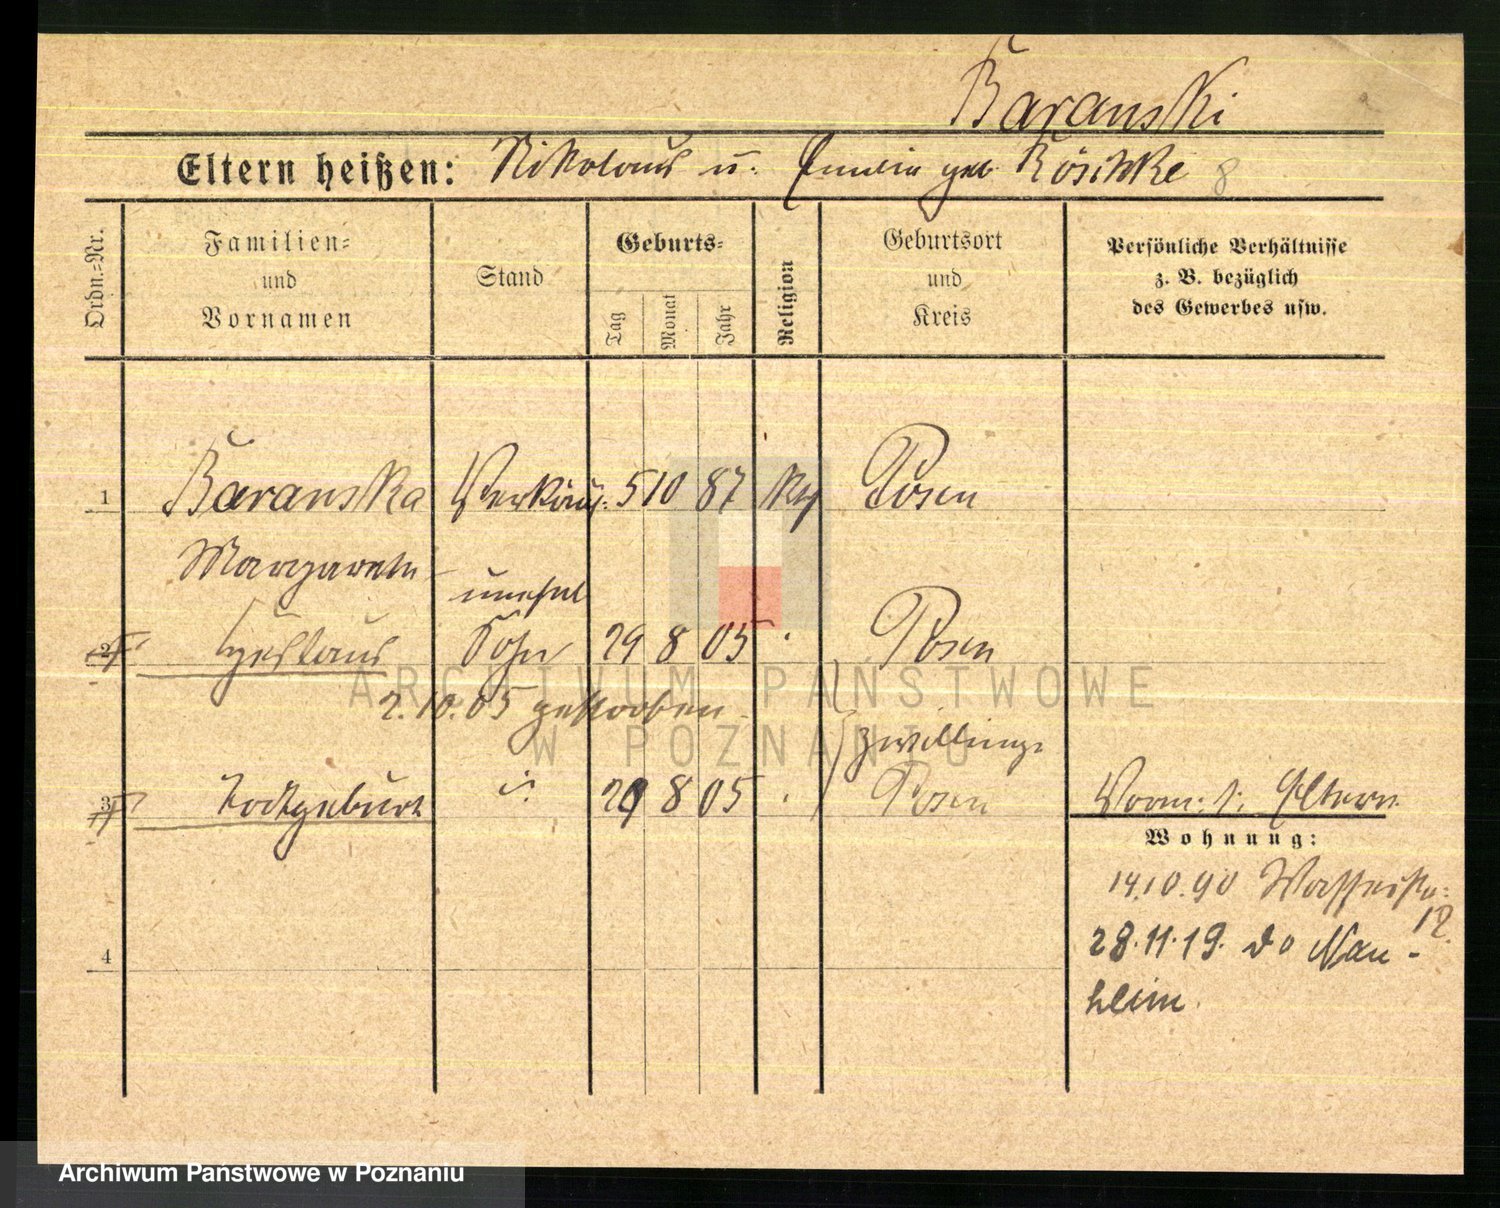 Baranski
Eltern heißen: Nikolaus u. Emilie geb. Röschke 8
Ordn.-Nr.
Familien-
und
Vornamen
Stand
Geburts-
Tag
Monat
Jahr
Religion
Geburtsort
und
Kreis
Persönliche Verhältnisse
z. B. bezüglich
des Gewerbes usw.
1 Baranska Verkäuf. 5 10 87 kth Posen
Margarete
unehel
2 Sohn 29 8 05 Posen
2.10.05 gestorben
Zwillinge
3 Todtgeburt 29 8 05 Posen Vorm. s. Eltern
Wohnung:
14.10.90 Wasserstr.
12.
28.11.19. do Nau-
heim.
4
ARCHIWUM PAŃSTWOWE
W POZNANIU
Archiwum Państwowe w Poznaniu